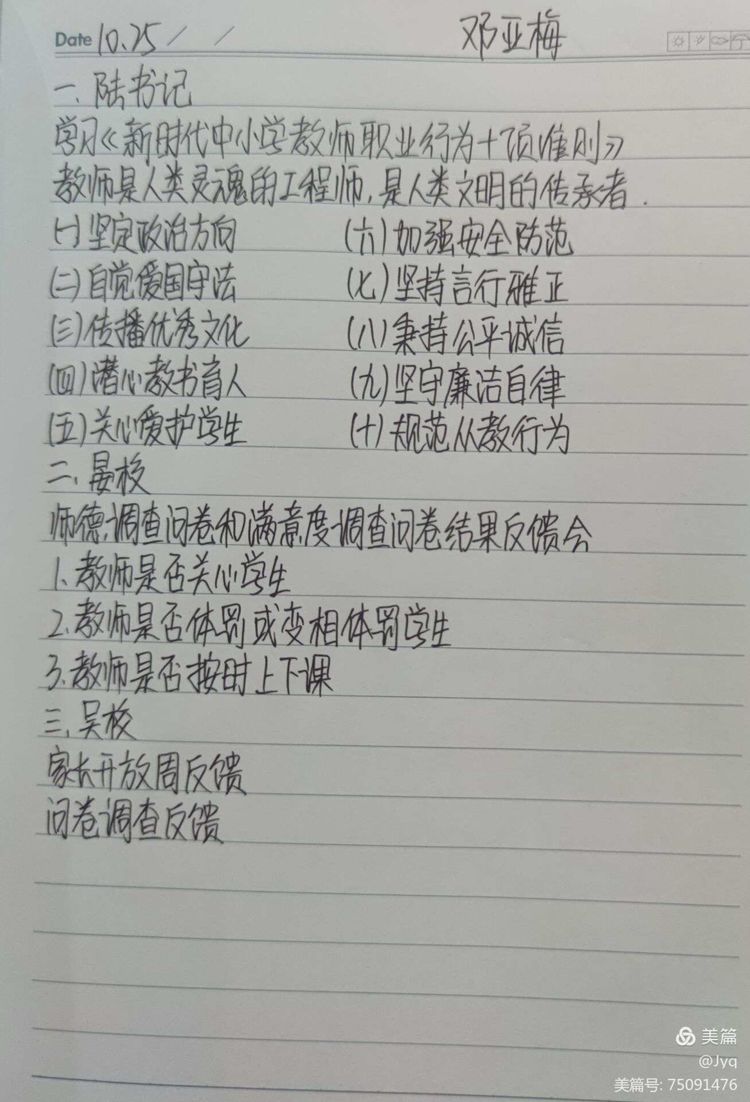 Date 10.25 / / 邓亚梅
一、陆书记
学习《新时代中小学教师职业行为十项准则》
教师是人类灵魂的工程师,是人类文明的传承者.
(一)坚定政治方向 (六)加强安全防范
(二)自觉爱国守法 (七)坚持言行雅正
(三)传播优秀文化 (八)秉持公平诚信
(四)潜心教书育人 (九)坚守廉洁自律
(五)关心爱护学生 (十)规范从教行为
二、晏校
师德调查问卷和满意度调查问卷结果反馈会
1.教师是否关心学生
2.教师是否体罚或变相体罚学生
3.教师是否按时上下课
三、吴校
家长开放周反馈
问卷调查反馈
美篇
@Jyq
美篇号: 75091476